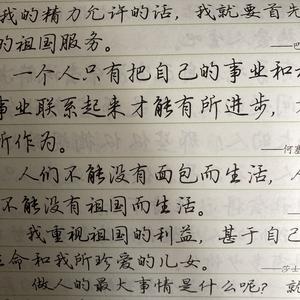 我的精力允许的话，我就要首先
的祖国服务。
——巴
一个人只有把自己的事业和
事业联系起来才能有所进步，
所作为。
——何塞
人们不能没有面包而生活，人
不能没有祖国而生活。
我重视祖国的利益，甚于自己
生命和我所珍爱的儿女。
——莎士
做人的最大事情是什么呢？就